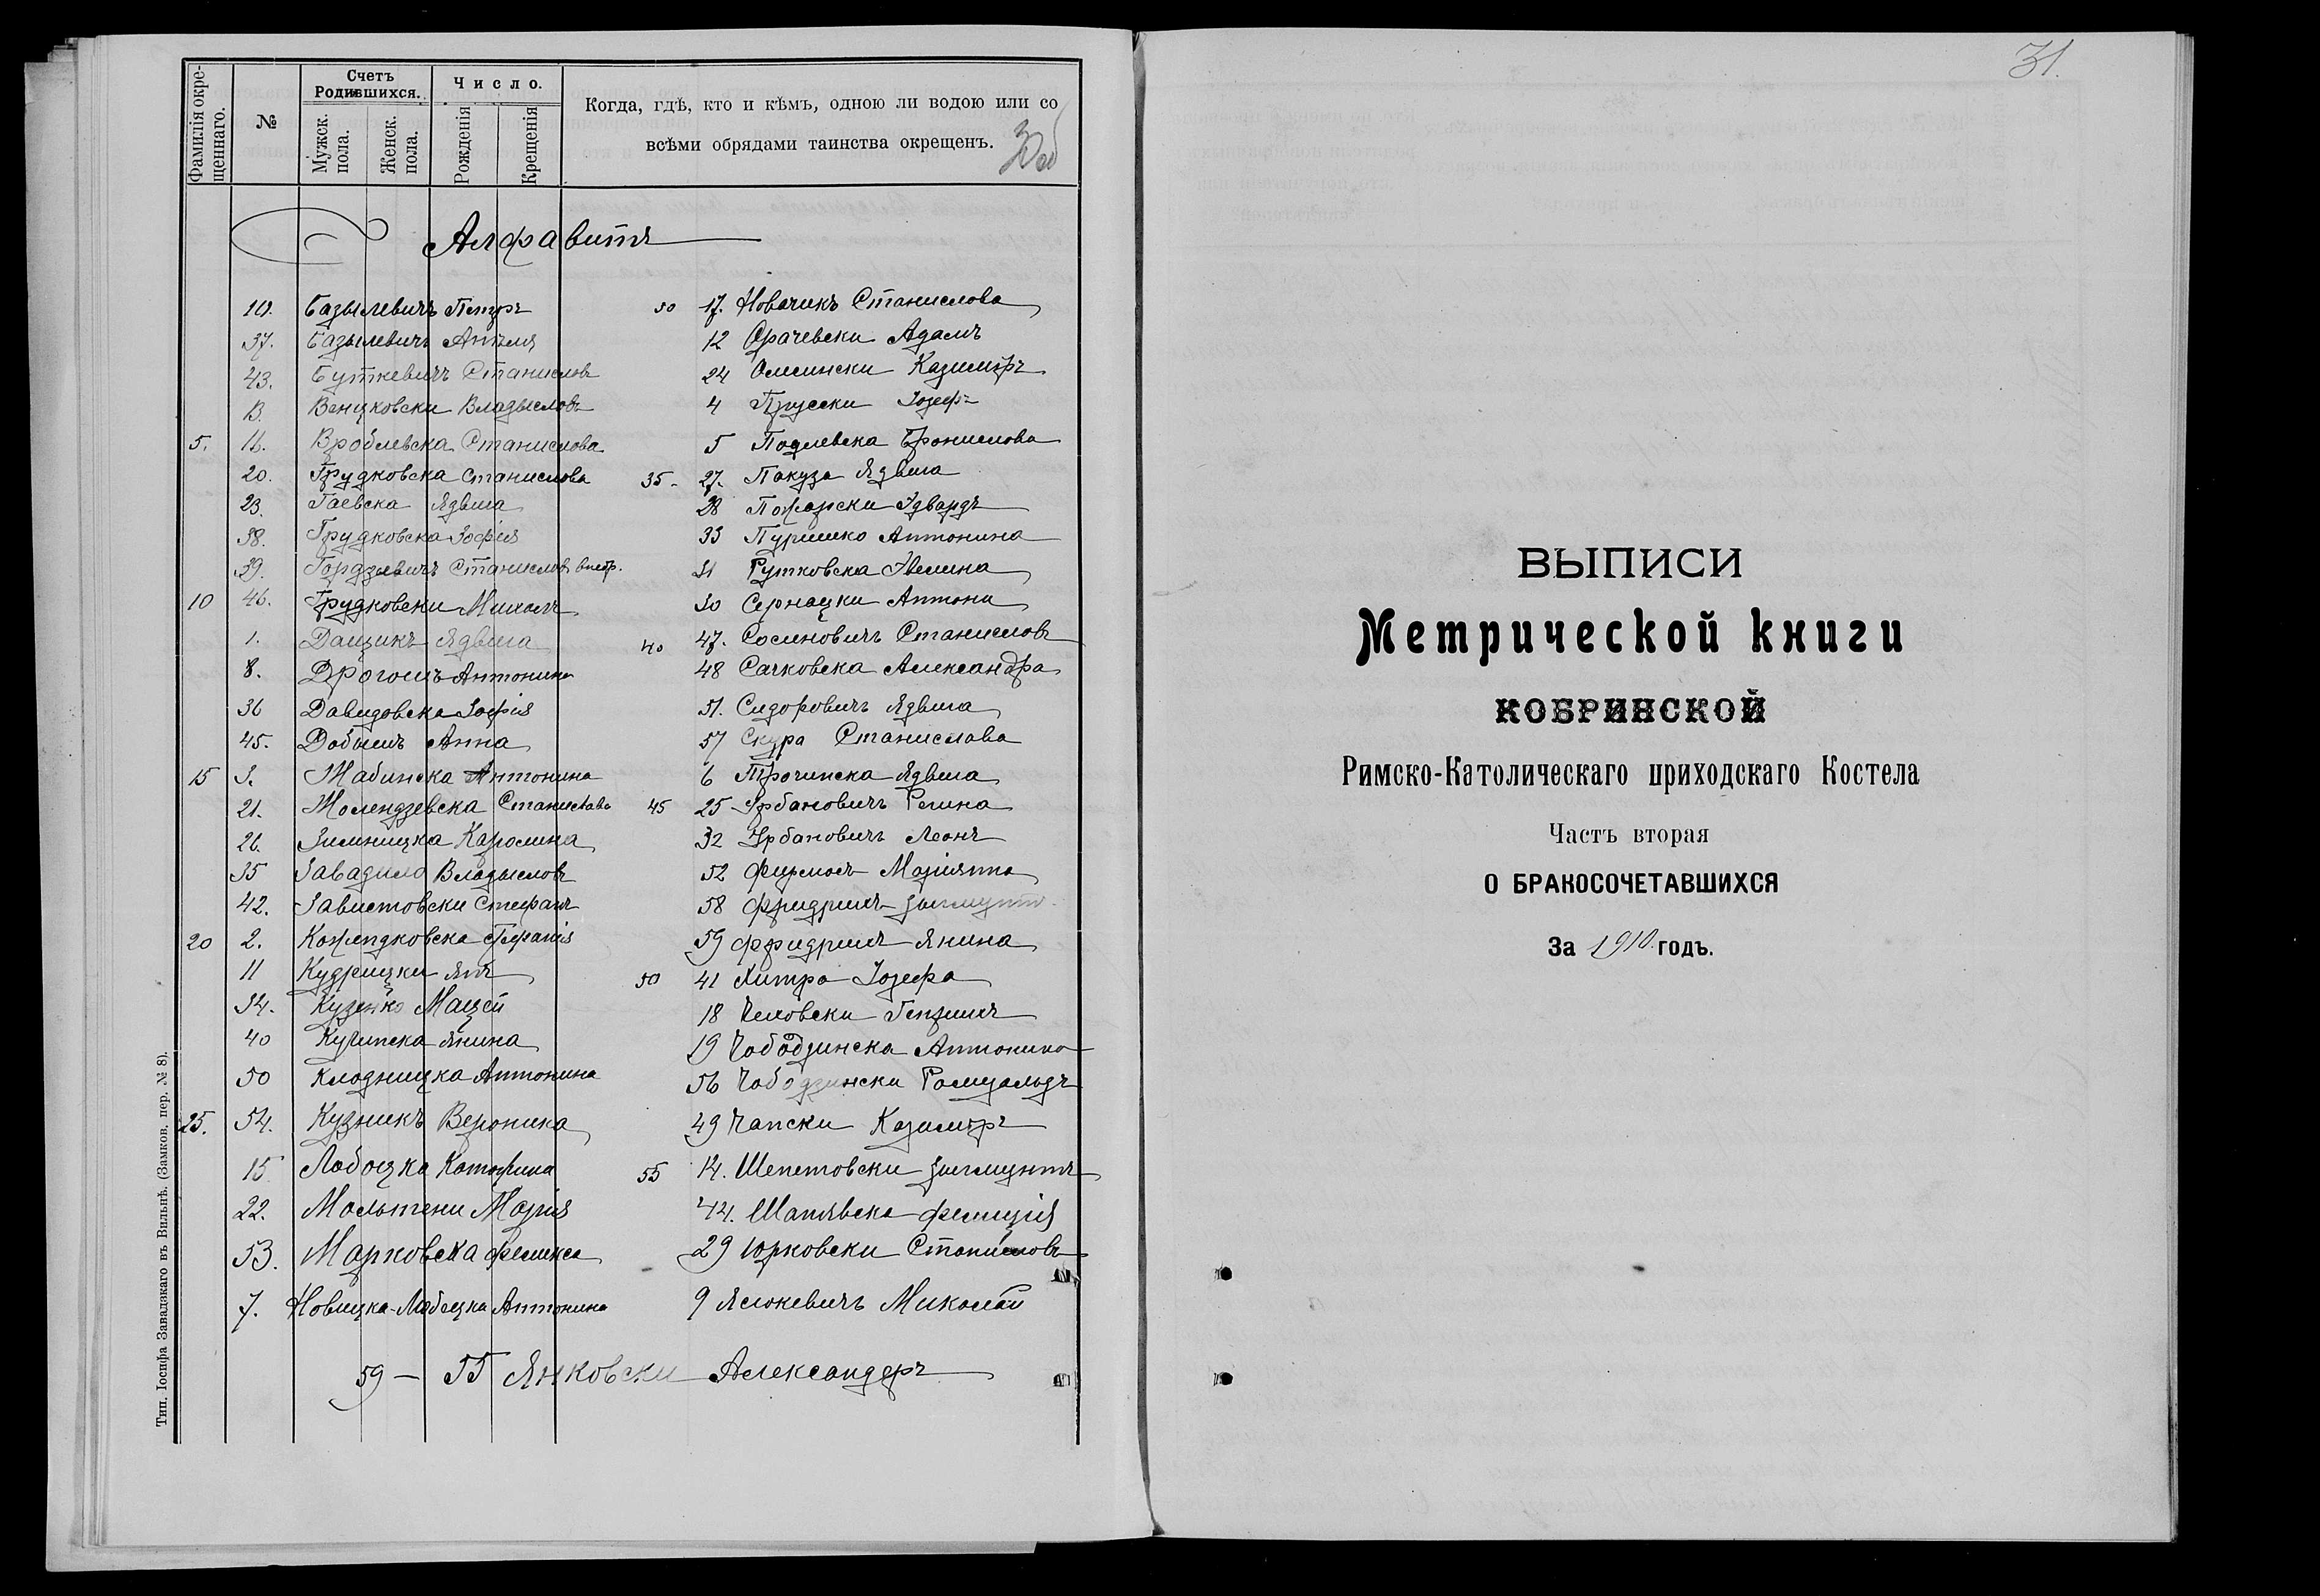 Фамилія окре-
щеннаго.
№
Счетъ
Родившихся.
Мужск.
пола.
Женск.
пола.
Число.
Рожденія
Крещенія
Когда, гдѣ, кто и кѣмъ, одною ли водою или со
всѣми обрядами таинства окрещенъ.
30 об
Алфавитъ
10. Базылевичъ Петръ
37. Базылевичъ Анѣля
43. Буткевичъ Станиславъ
13. Венцковски Владыславъ
5. 16. Вроблевска Станислава
20. Грудковска Станислава
23. Гаевска Ядвига
38. Грудковска Зофія
39. Станиславъ
10 46. Грудковски Михалъ
1. Данцикъ Ядвига
8. Антонина
36 Давидовска Зофія
45. Анна
15 3. Жабинска Антонина
21. Жолендзевска Станислава
26. Зимницка Каролина
35 Завадило Владыславъ
42. Завистовски Стефанъ
20 2. Стефанія
11 Кудрицки Янъ
34. Кузенко Мацей
40 Янина
50 Клодницка Антонина
25. 54. Кузникъ Вероника
15 Лобоцка Катарина
22. Марія
53. Марковска Феликса
7. Новицка-Лобоцка Антонина
30 17. Новачикъ Станислава
12 Орачевски Адамъ
24 Олесински Казимѣръ
4 Пруски Іозефъ
5 Подлевска Бронислава
35- 27. Пакуза Ядвига
28 Пожарски Эдвардъ
33 Антонина
31 Рутковска Эвелина
30 Сернацки Антони
40 47. Сосиновичъ Станиславъ
48 Сачковска Александра
51. Сидоровичъ Ядвига
57 Скура Станислава
6 Трочинска Ядвига
45 25 Урбановичъ Регина
32 Урбановичъ Леонъ
52 Маріянна
58 Фридрихъ Зыгмунтъ
59 Фридрихъ Янина
50 41 Хитра Іозефа
18 Генрихъ
19 Чабодзинска Антонина
56 Чабодзински Ромуальдъ
49 Чапски Казимѣръ
55 14. Шепетовски Зыгмунтъ
44. Шапявска Фелиція
29 Юрковски Станиславъ
9 Ясюкевичъ Миколай
59 — 55 Янковски Александеръ
Тип. Іосифа Завадзкаго въ Вильнѣ. (Замков. пер. № 8).
31.
ВЫПИСИ
Метрической книги
КОБРИНСКОЙ
Римско-Католическаго приходскаго Костела
Часть вторая
О БРАКОСОЧЕТАВШИХСЯ
За 1910 годъ.